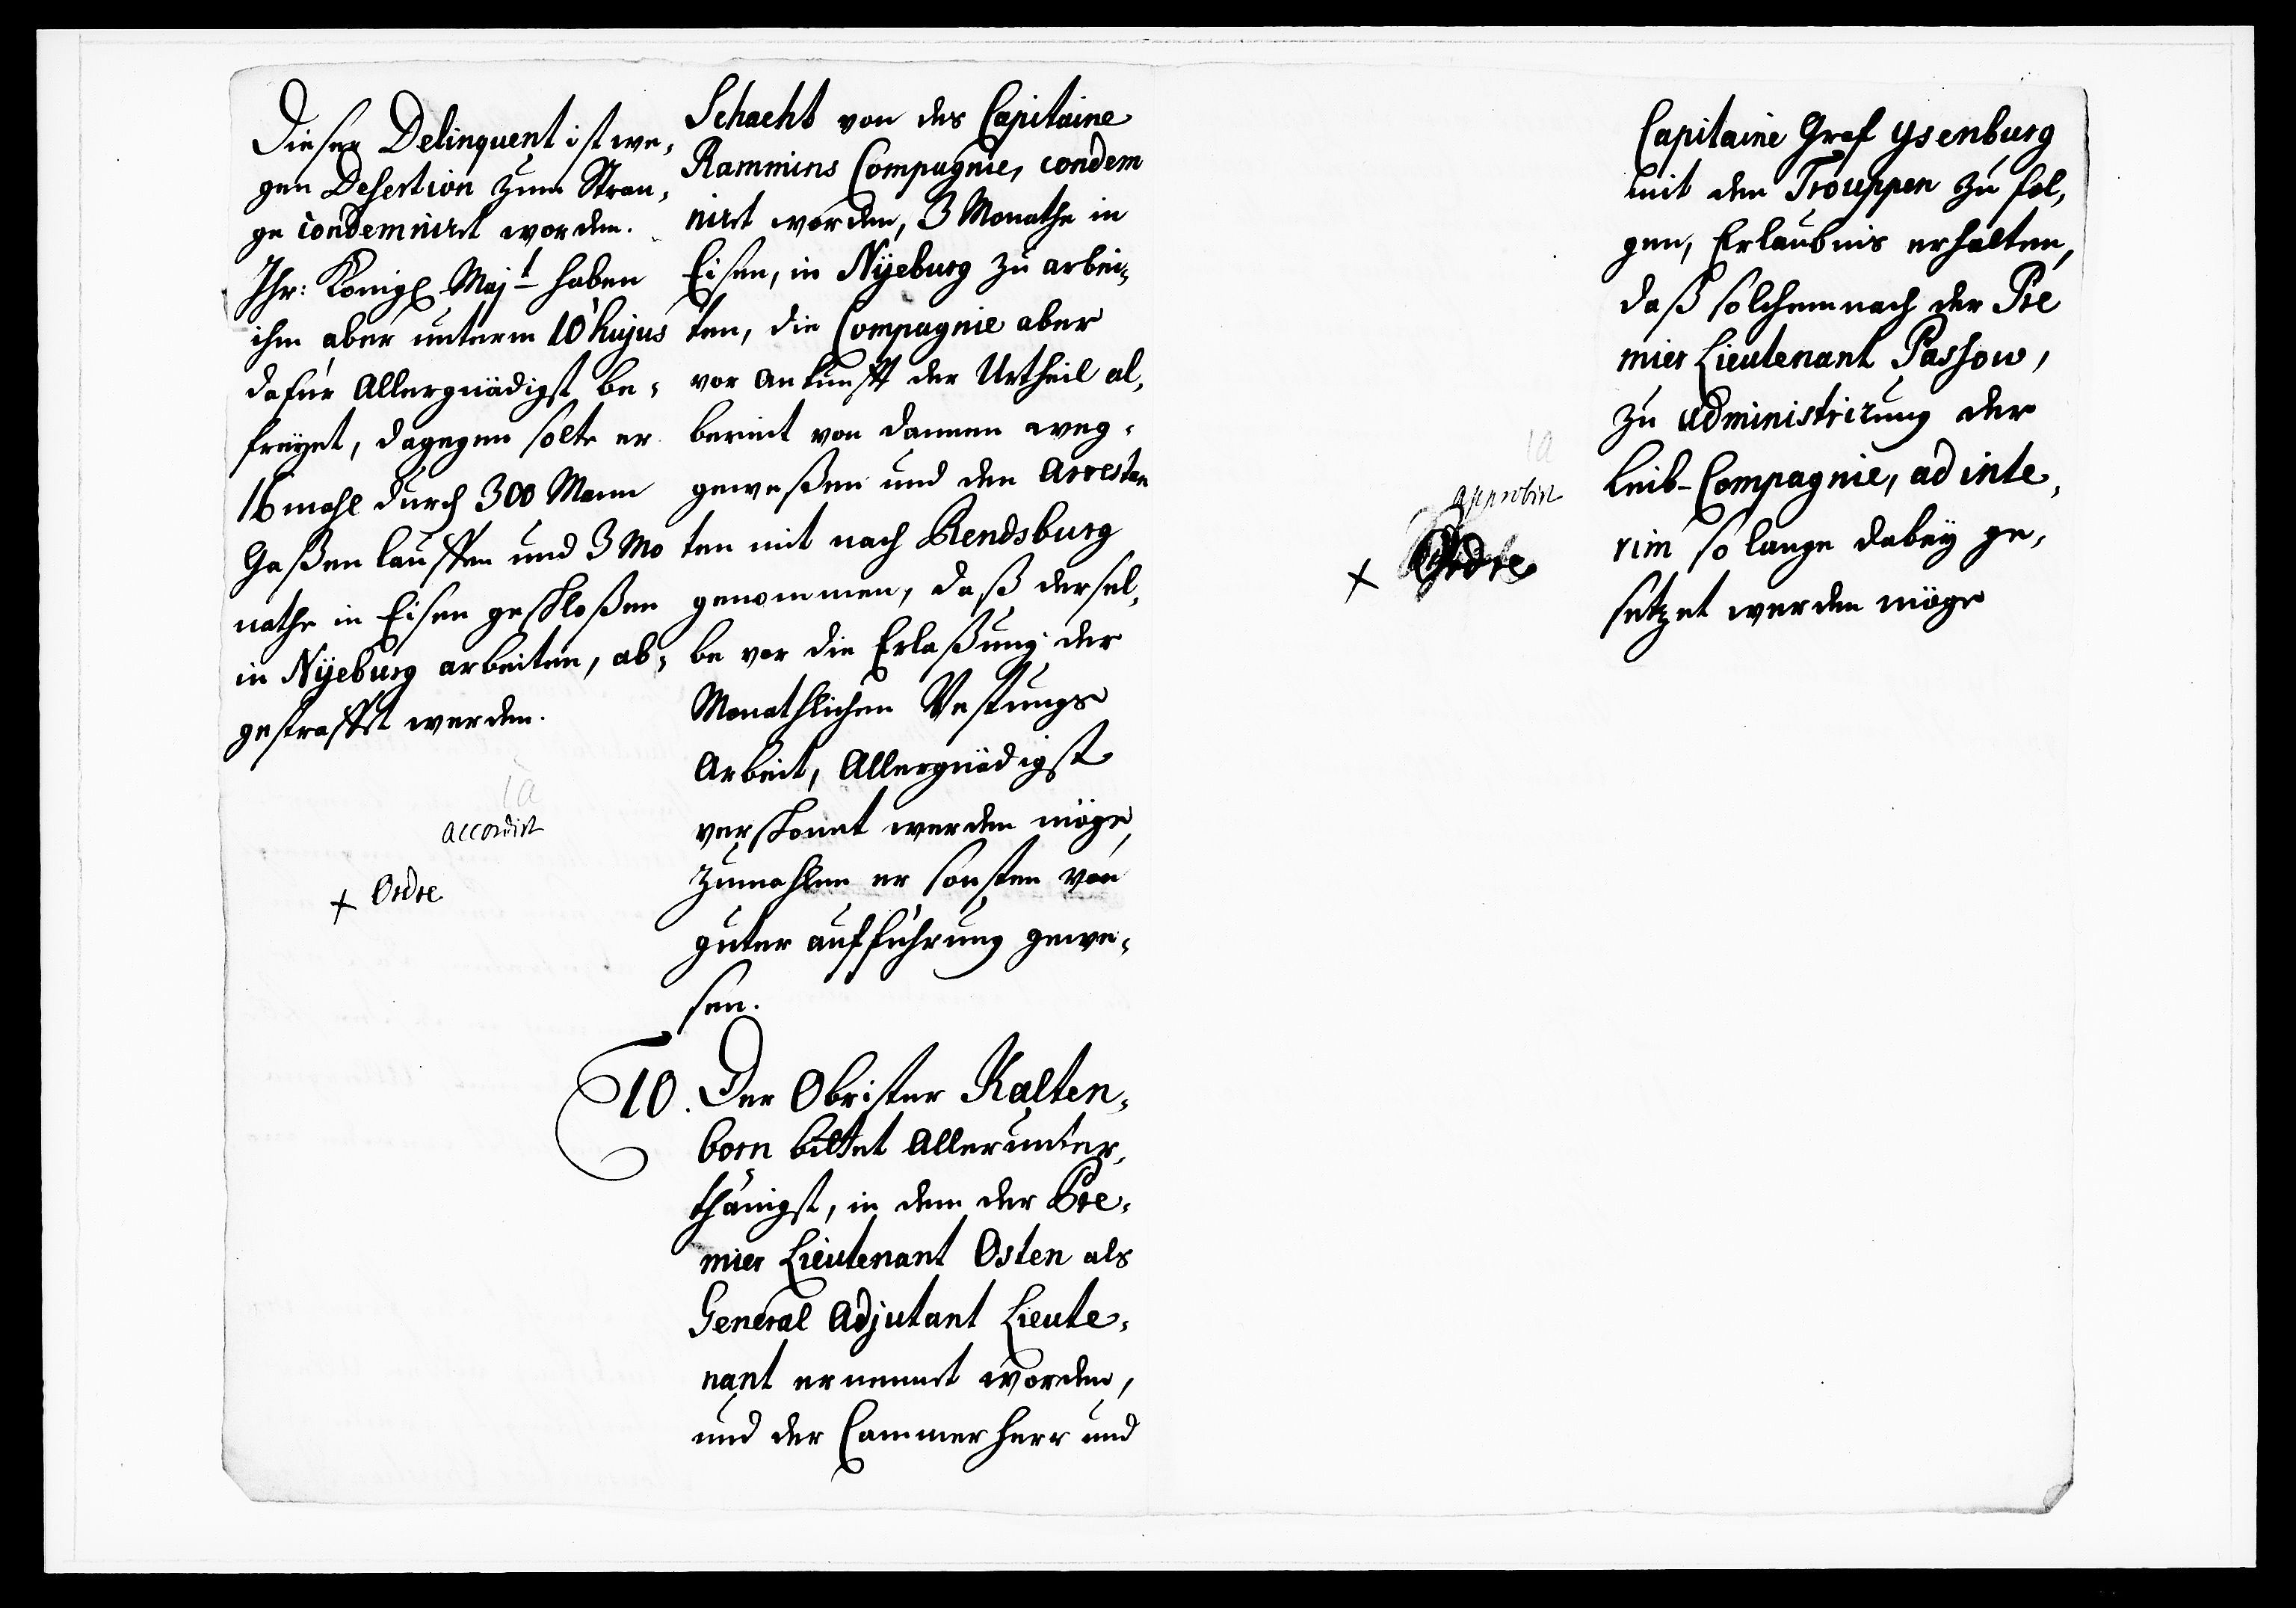 Dieser Delinquent ist we-
gen Desertion zum Stran-
ge condemnirt worden.
Ihr: Königl Majt haben
ihm aber unterm 10 hujus
dafür Allergnädigst be-
freyet, dagegen solte er
16 mahl durch 300 Mann
Gaßen lauffen und 3 Mo
nathe in Eisen geschloßen
in Nÿeburg arbeiten, ab-
gestrafft werden.
ia
accordirt
x Ordre
Schacht von des Capitaine
Rammins Compagnie, condem
nirt worden, 3 Monathe in
Eisen, in Nÿeburg zu arbei-
ten, die Compagnie aber
vor Ankunfft der Urtheil al-
bereit von dannen weg-
geweßen und den Arrestan
ten mit nach Rendsburg
genommen, daß dersel-
be vor die Erlaßung der
Monathlichen Vestungs
Arbeit, Allergnädigst
verschonet werden möge,
zumahlen er sonsten von
guter aufführung gewe-
sen.
10. Der Obrister Kalten-
born bittet Allerunter-
thänigst, in dem der Pre-
mier Lieutenant Osten als
General Adjutant Lieute-
nant ernennet worden,
und der Cammerherr und
Capitaine Graf Ysenburg
mit den Trouppen zu fol-
gen, Erlaubnis erhalten,
daß solchemnach der Pre
mier Lieutenant Passow,
zu administrirung der
Leib-Compagnie, ad inte-
rim so lange dabeÿ ge-
setzet werden möge
ia
approbirt
x Ordre